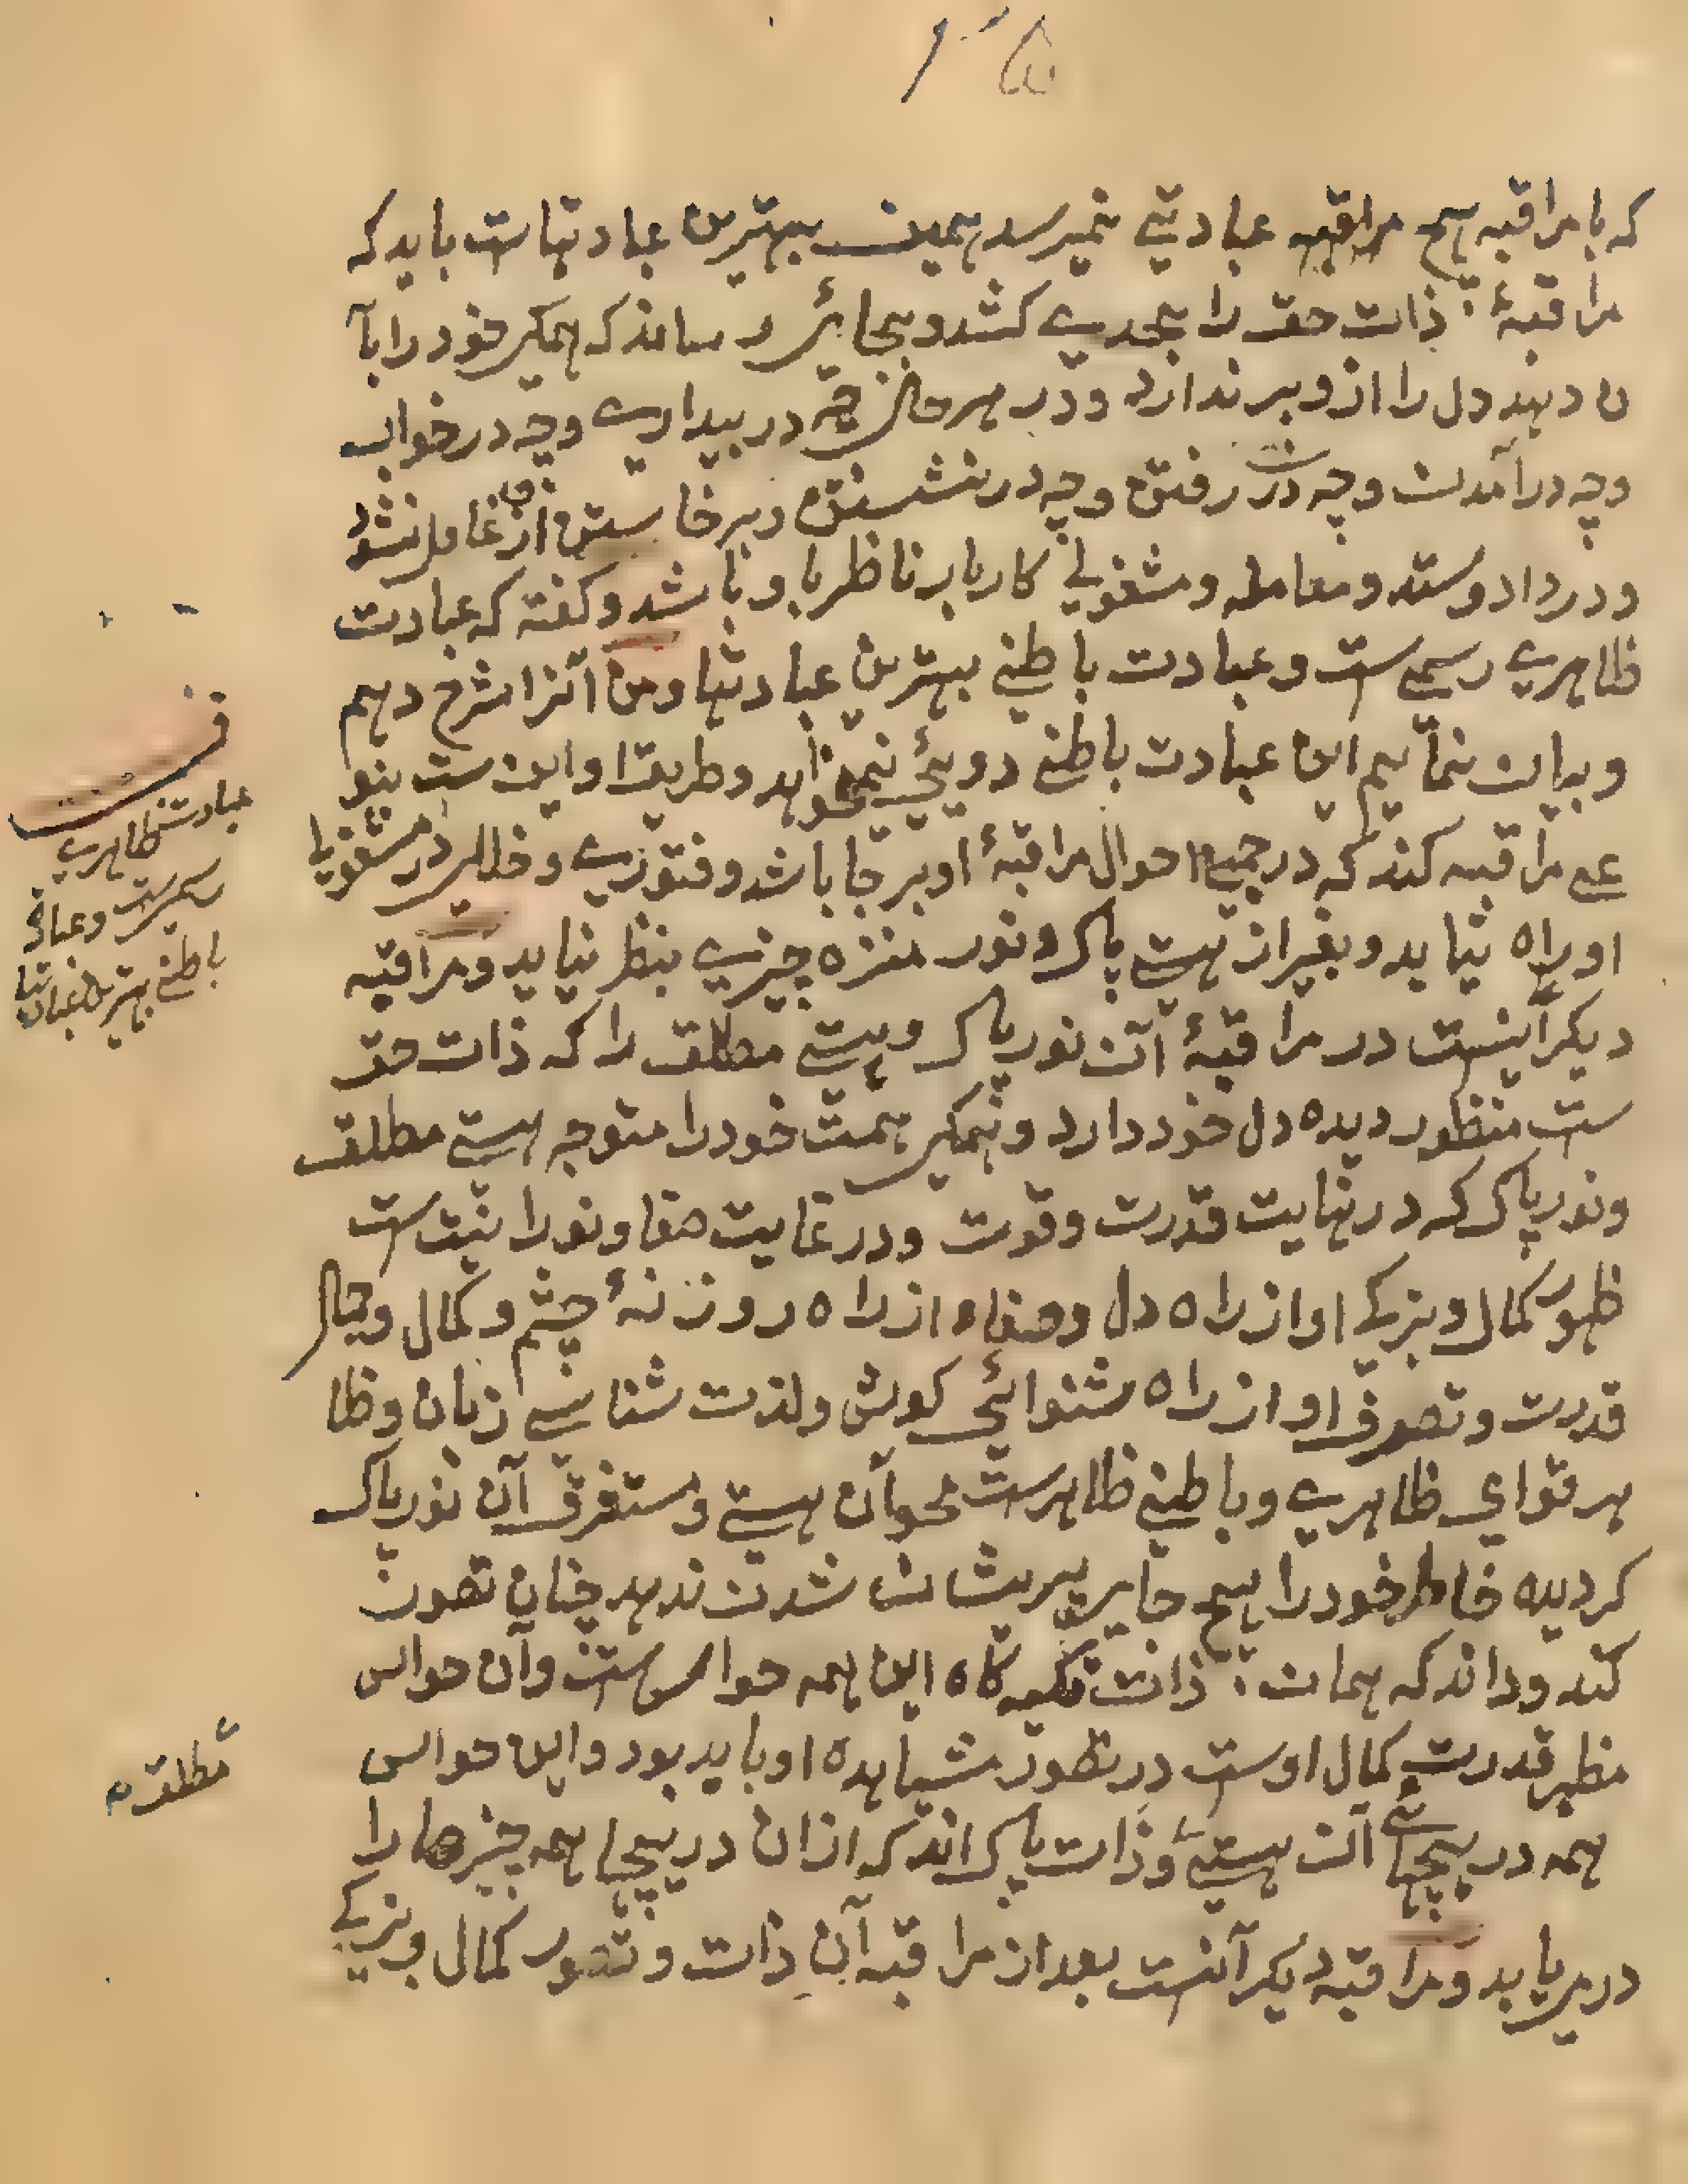 که با مراقبه هیچ مراقبه عبادتی نمیرسد همین بهترین عبادتهاست باید که
مراقبهٔ ذات حق را بحدی کشد و بجائی رساند که همگی خود را بآ
ن دهد دل را ازو بر ندارد و در هر حال چه در بیداری و چه در خواب
و چه در آمدن و چه در رفتن و چه در نشستن و برخاستن ازو غافل نشود
و در داد و ستد و معامله و مشغولی کارها بر ناظر با و باشد و گفته که عبادت
ظاهری رسمی ست و عبادت باطنی بهترین عبادتها و من آنرا شرح دهم
و بیان نمایم این عبادت باطنی دوئی نمیخواهد و طریق او این ست بنو
عی مراقبه کند که در جمیع احوال مراقبهٔ او بر جا باشد و فتوری و خللی در مشغولی
او راه نیابد و بغیر از هستی پاک و نور منزه چیزی بنظر نیاید و مراقبه
دیگر آنست در مراقبهٔ آن نور پاک و هستی مطلق را که ذات حق
ست منظور دیده دل خود دارد و همگی همت خود را متوجه هستی مطلق
و نور پاک که در نهایت قدرت و قوت و در غایت صفا و نورانیت ست
ظهور کمال و بزرگی او از راه دل و صفاء از راه روزنهٔ چشم و کمال و جمال
قدرت و تصرف او از راه شنوائی گوش و لذت شناسی زبان و ظا
هر قوای ظاهری و باطنی ظاهرست محو آن هستی و مستغرق آن نور پاک
گردیده خاطر خود را هیچ جا پریشان شدن ندهد چنان تصور
کند و داند که همان ذات تکیه گاه این همه حواس ست و آن حواس
مظهر قدرت کمال اوست در تصور مشاهده او باید بود و این حواس
همه دریچهای آن هستی و ذات پاک اند که از ان دریچها همه چیزها را
در می یابد و مراقبه دیگر آنست بعد از مراقبه آن ذات و تصور کمال و بزرگی
عبادت ظاهری
رسمیست و عبادت
باطنی بهترین عبادتها
مطلق